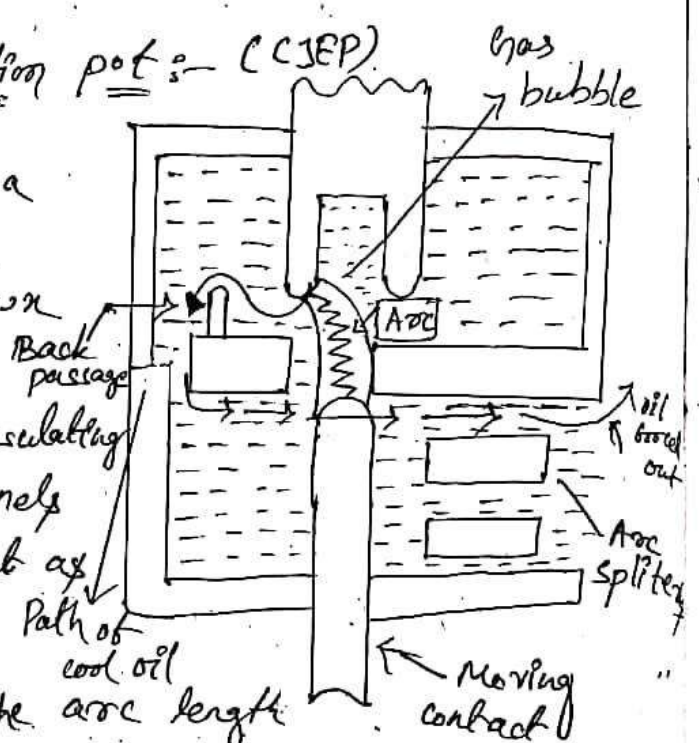 tion pot :- (CJEP)
Gas
bubble
a
Arc
Back
passage
sulating
oil
out
nels
t as
Arc
Spliter
Path of
cool oil
Moving
contact
he arc length